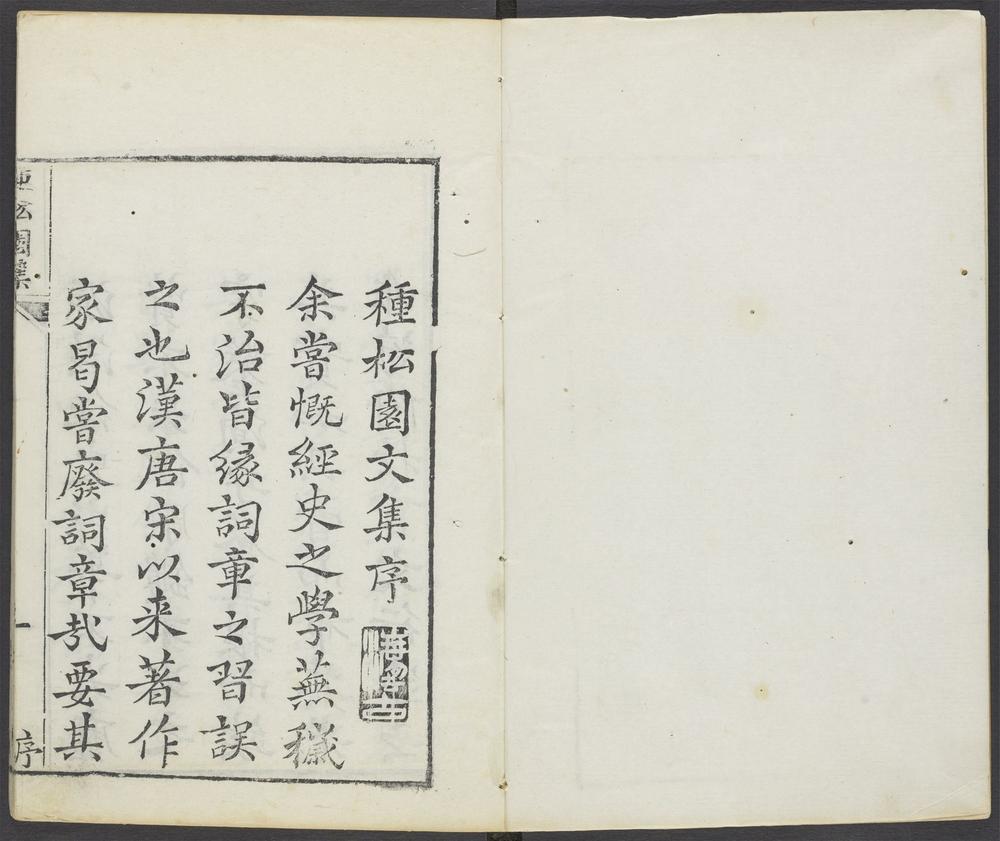 種松園文集序
余嘗慨經史之學蕪穢
不治皆緣詞章之習誤
之也漢唐宋以来著作
家曷嘗廢詞章㢤要其
松園集
一
序